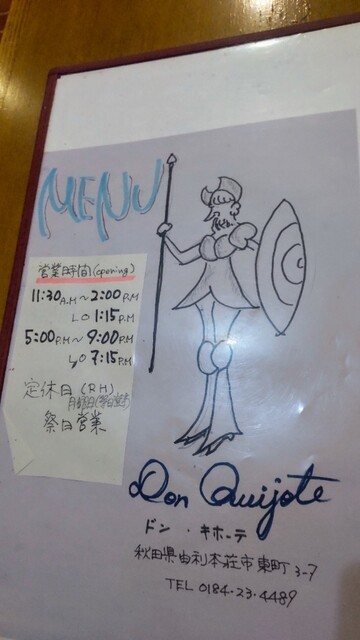 MENU
営業時間(opening)
11:30A.M~2:00P.M
LO 1:15P.M
5:00P.M~9:00P.M
LO 7:15P.M
定休日(RH)
祭日営業
Don Quijote
ドン・キホーテ
秋田県由利本荘市東町3-7
TEL 0184-23-4489